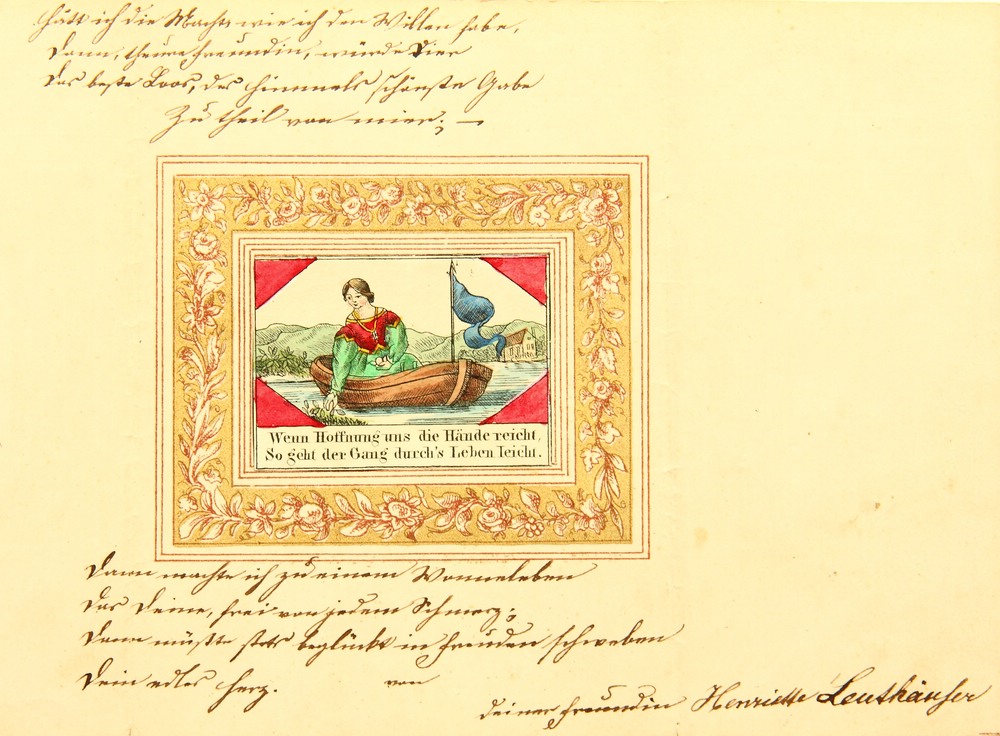 Hätt ich die Macht, wie ich den Willen habe,
Dann, theure Freundin, würde Dier
Das beste Loos, des Himmels schönste Gabe
Zu theil von mier; —
Wenn Hoffnung uns die Hände reicht,
So geht der Gang durch's Leben leicht.
Dann machte ich zu einem Wonneleben
Das Deine, frei von jedem Schmerz;
Dann müßte stets beglückt in Freuden schweben
Dein edles Herz. von
deiner Freundin Henriette Leuthäußer